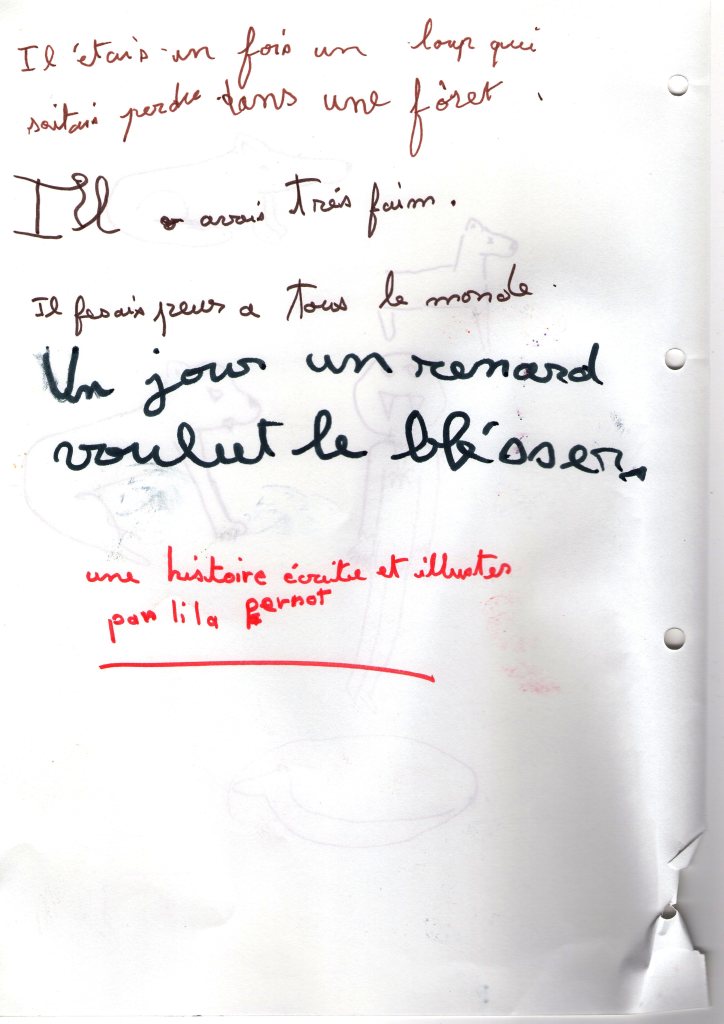 Il étais un fois un loup qui
sœtais perdu dans une fôret.
Il avais très faim.
Il fesais peur a tous le monde.
Un jour un renard
voulut le blésser.
une histoire écritte et illustes
par lila Pernot